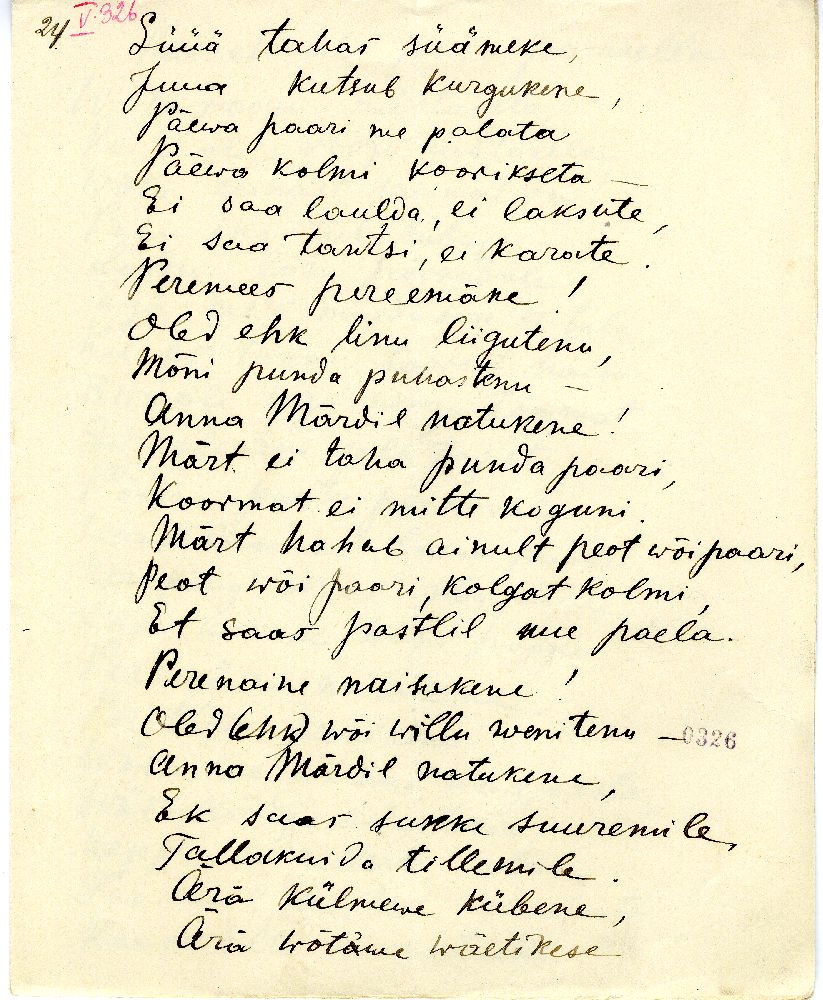 24 V. 326
Süüä tahas süämeke,
Juua kutsub kurgukene,
Päewa paari me palata
Päewa kolmi koorikseta —
Ei saa laulda, ei laksute,
Ei saa tantsi, ei karate.
Peremees pereemäne!
Oled ehk linu liigutenu,
Mõni punda puhastenu —
Anna Märdil natukene!
Märt ei taha punda paari,
Koormat ei mitte koguni.
Märt hahab ainult peot wõi paari,
Peot wõi paari, kolgat kolmi,
Et saas pastlil uue paela.
Perenaine naisukene!
Oled (ehk) wõi willu wenitenu — 0326
Anna Märdil natukene,
Ek saas sukka suuremile,
Tallakuida tillemile.
Ärä külmewe kübene,
Ärä wõtame wäetikese